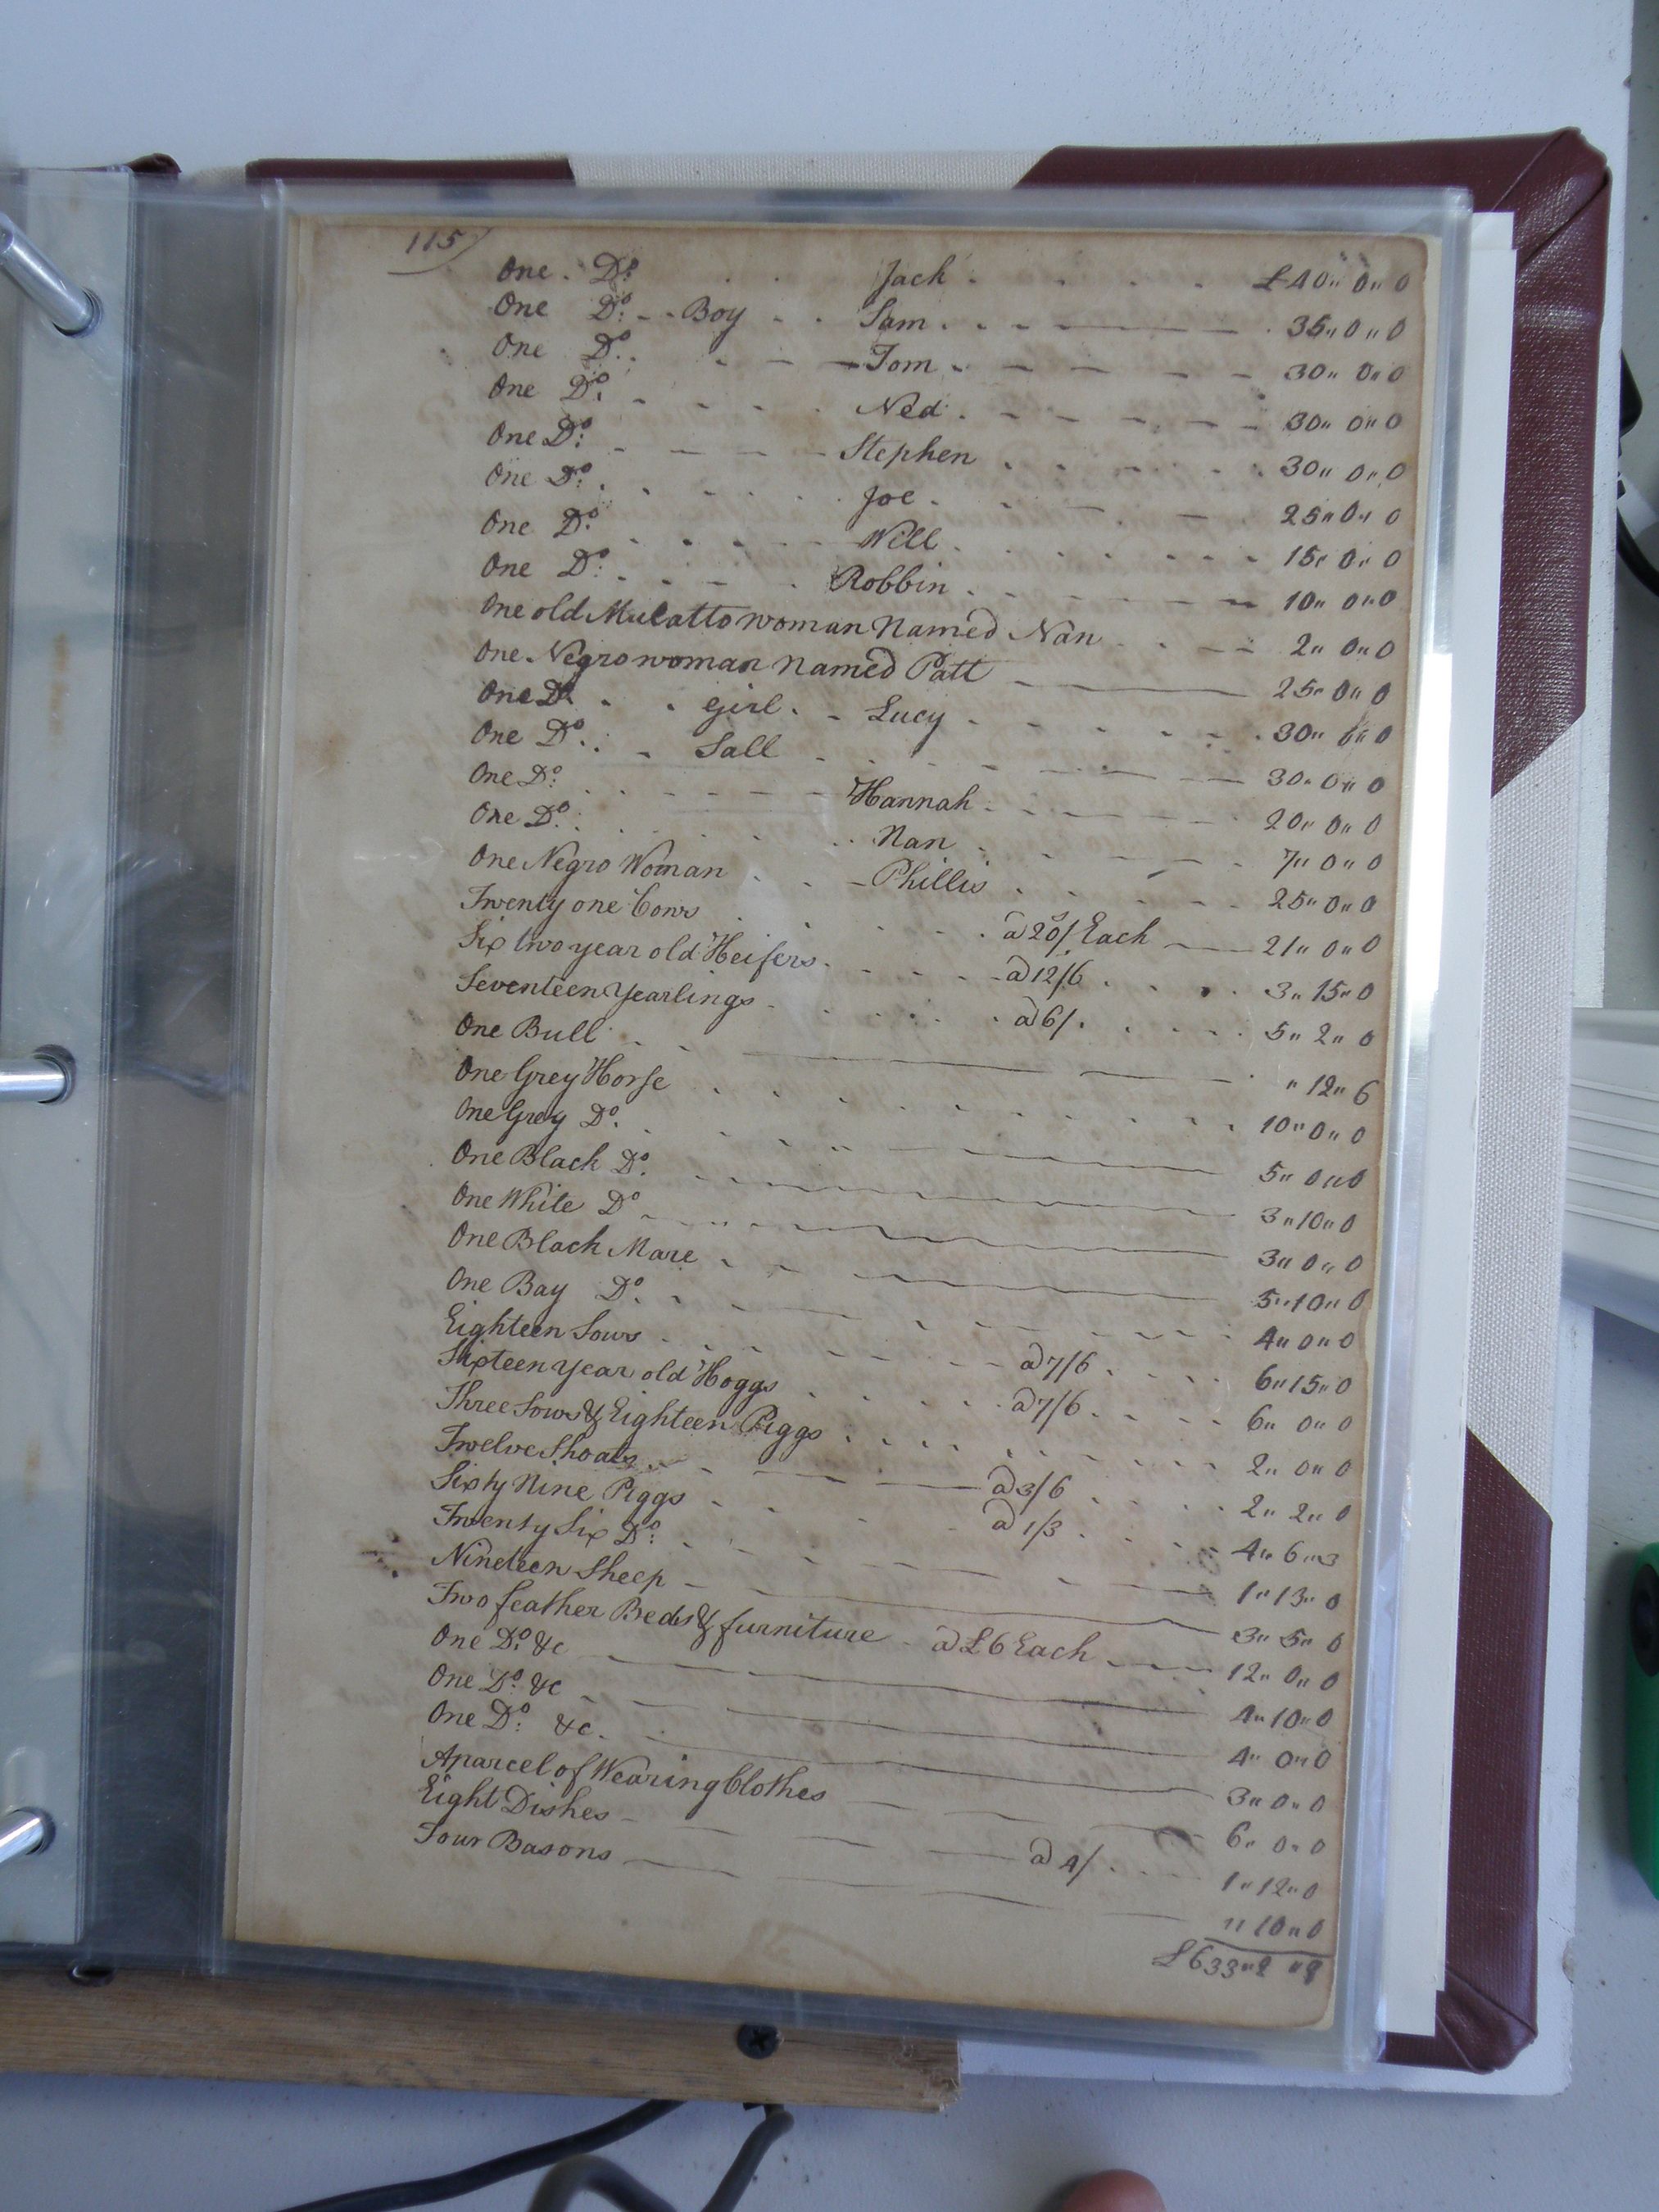 115
One Do. Jack £40" 0" 0
One Do. Boy Sam 35" 0" 0
One Do. Tom 30" 0" 0
One Do. Ned 30" 0" 0
One Do. Stephen 30" 0" 0
One Do. Joe 25" 0" 0
One Do. Will 15" 0" 0
One Do. Robbin 10" 0" 0
One old Mulatto woman Named Nan 2" 0" 0
One Negro woman named Patt 25" 0" 0
One Do. Girl Lucy 30" 0" 0
One Do. Sall 30" 0" 0
One Do. Hannah 20" 0" 0
One Do. Nan 7" 0" 0
One Negro Woman Phillis 25" 0" 0
Twenty one Cows a 20/ Each 21" 0" 0
Six two year old Heifers a 12/6 3" 15" 0
Seventeen Yearlings a 6/ 5" 2" 0
One Bull " 12" 6
One Grey Horse 10" 0" 0
One Grey Do. 5" 0" 0
One Black Do. 3" 10" 0
One White Do 3" 0" 0
One Black Mare 5" 10" 0
One Bay Do. 4" 0" 0
Eighteen Sows a 7/6 6" 15" 0
Sixteen Year old Hoggs a 7/6 6" 0" 0
Three Sows & Eighteen Piggs 2" 0" 0
Twelve Shoats a 3/6 2" 2" 0
Sixty Nine Piggs a 1/3 4" 6" 3
Twenty Six Do. 1" 13" 0
Nineteen Sheep 3" 5" 0
Two feather Beds & furniture a £6 Each 12" 0" 0
One Do. &c 4" 10" 0
One Do. &c 4" 0" 0
One Do. &c. 3" 0" 0
A parcel of Wearing Clothes 6" 0" 0
Eight Dishes a 4/ 1" 12" 0
Four Basons " 10" 0
£633"2"